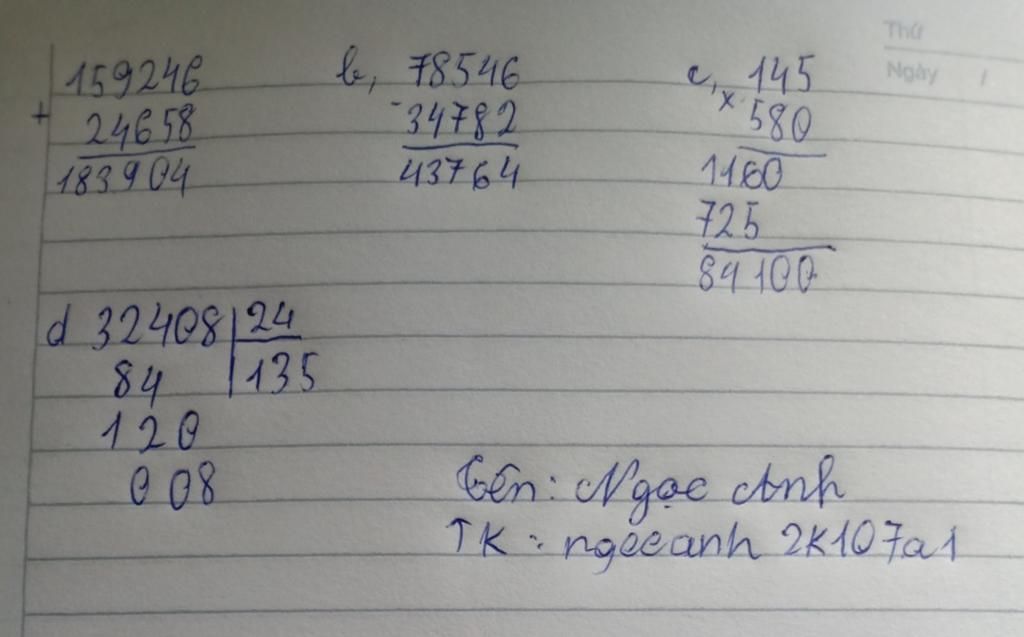 Thứ
Ngày /
159246
+
24658
183904
b, 78546
-
34782
43764
c, 145
x
580
1160
725
84100
d 32408 24
84 135
120
008
Tên: Ngọc Anh
TK: ngocanh 2k107a1